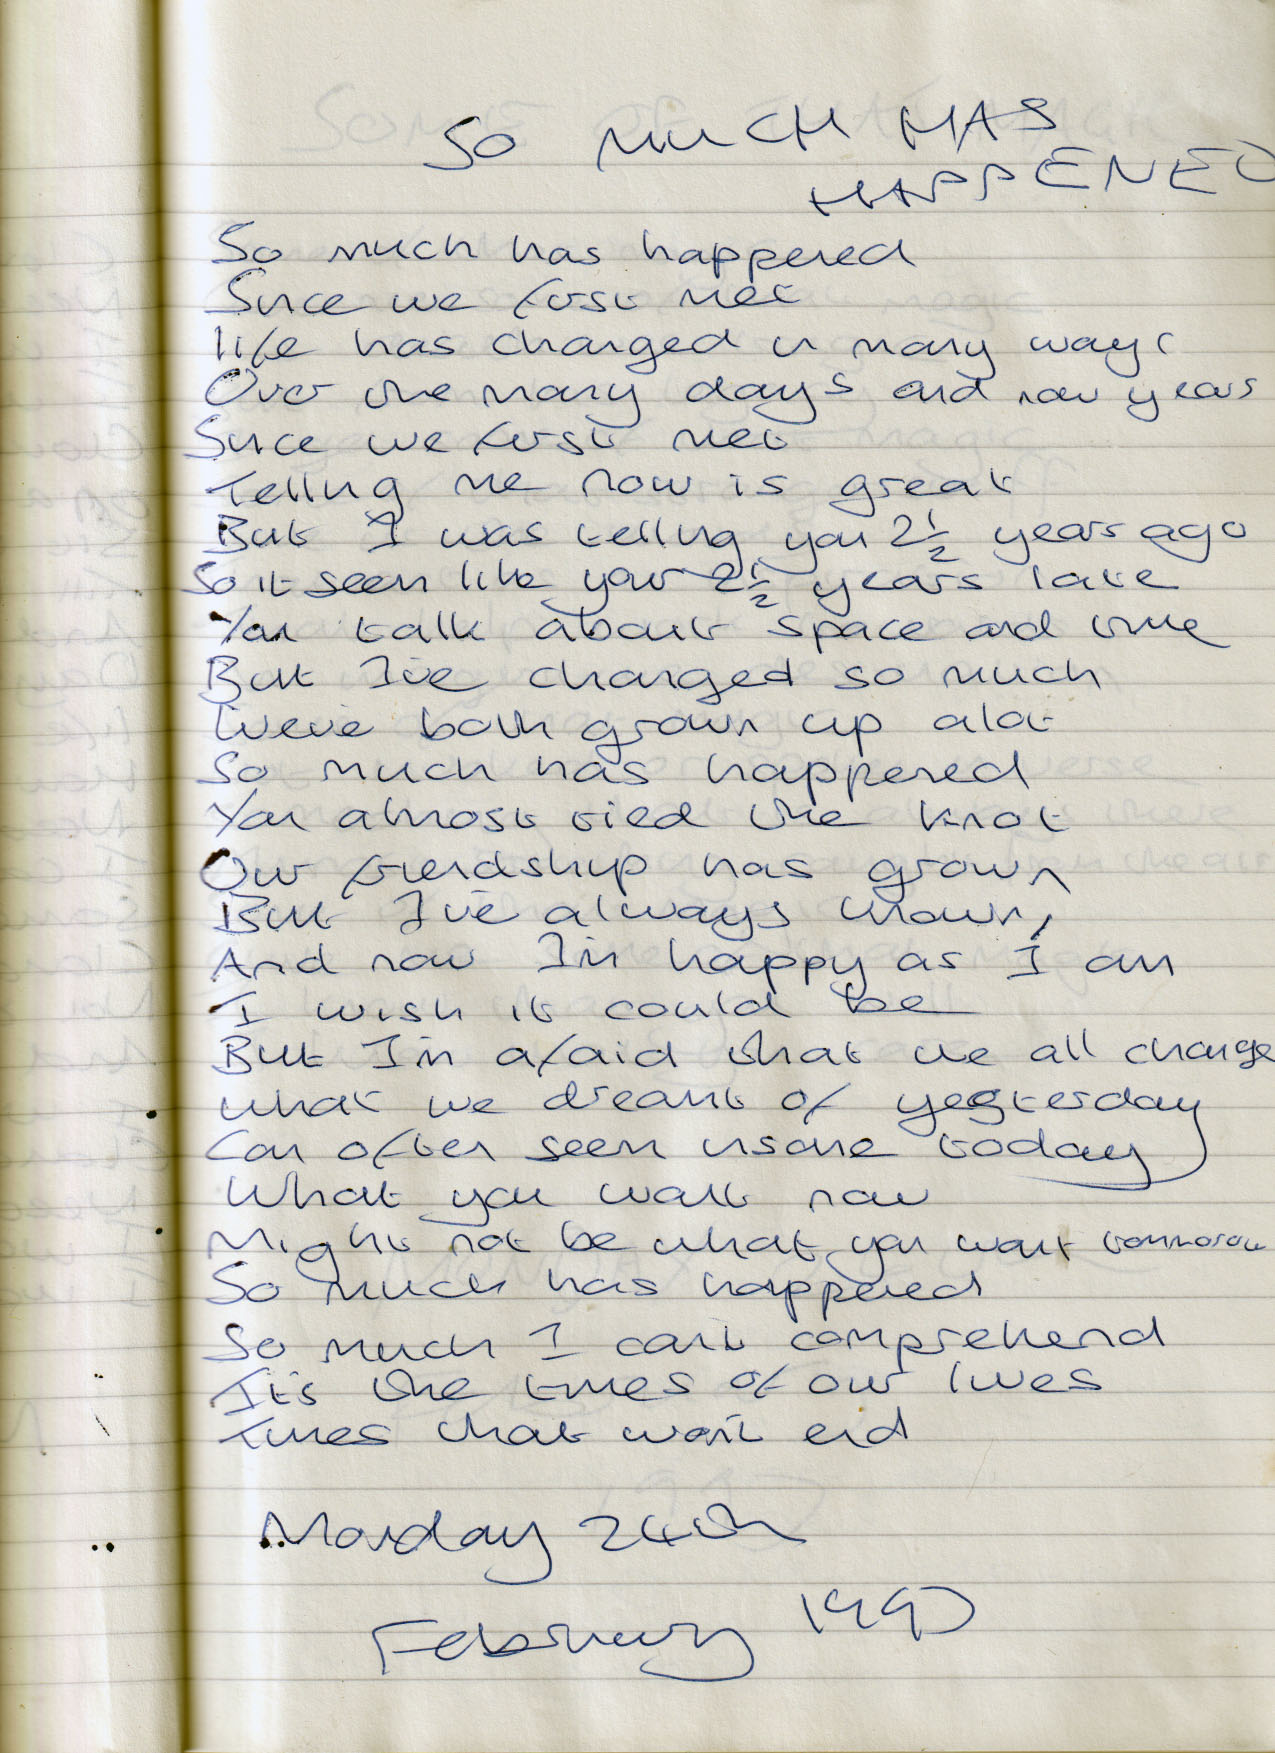 SO MUCH HAS
HAPPENED
So much has happened
Since we first met
life has changed in many ways
Over the many days and now years
Since we first met
Telling me now is great
But I was telling you 2½ years ago
So it seem like your 2½ years late
You talk about space and time
But I've changed so much
We've both grown up alot
So much has happened
You almost tied the knot
Our friendship has grown
But I've always known,
And now I'm happy as I am
I wish it could be
But I'm afraid that we all change
What we dreamt of yesterday
Can often seem insane today
What you want now
Might not be what you want tommorow
So much has happened
So much I can't comprehend
It's the times of our lives
Times that won't end
Monday 24th
February 1997